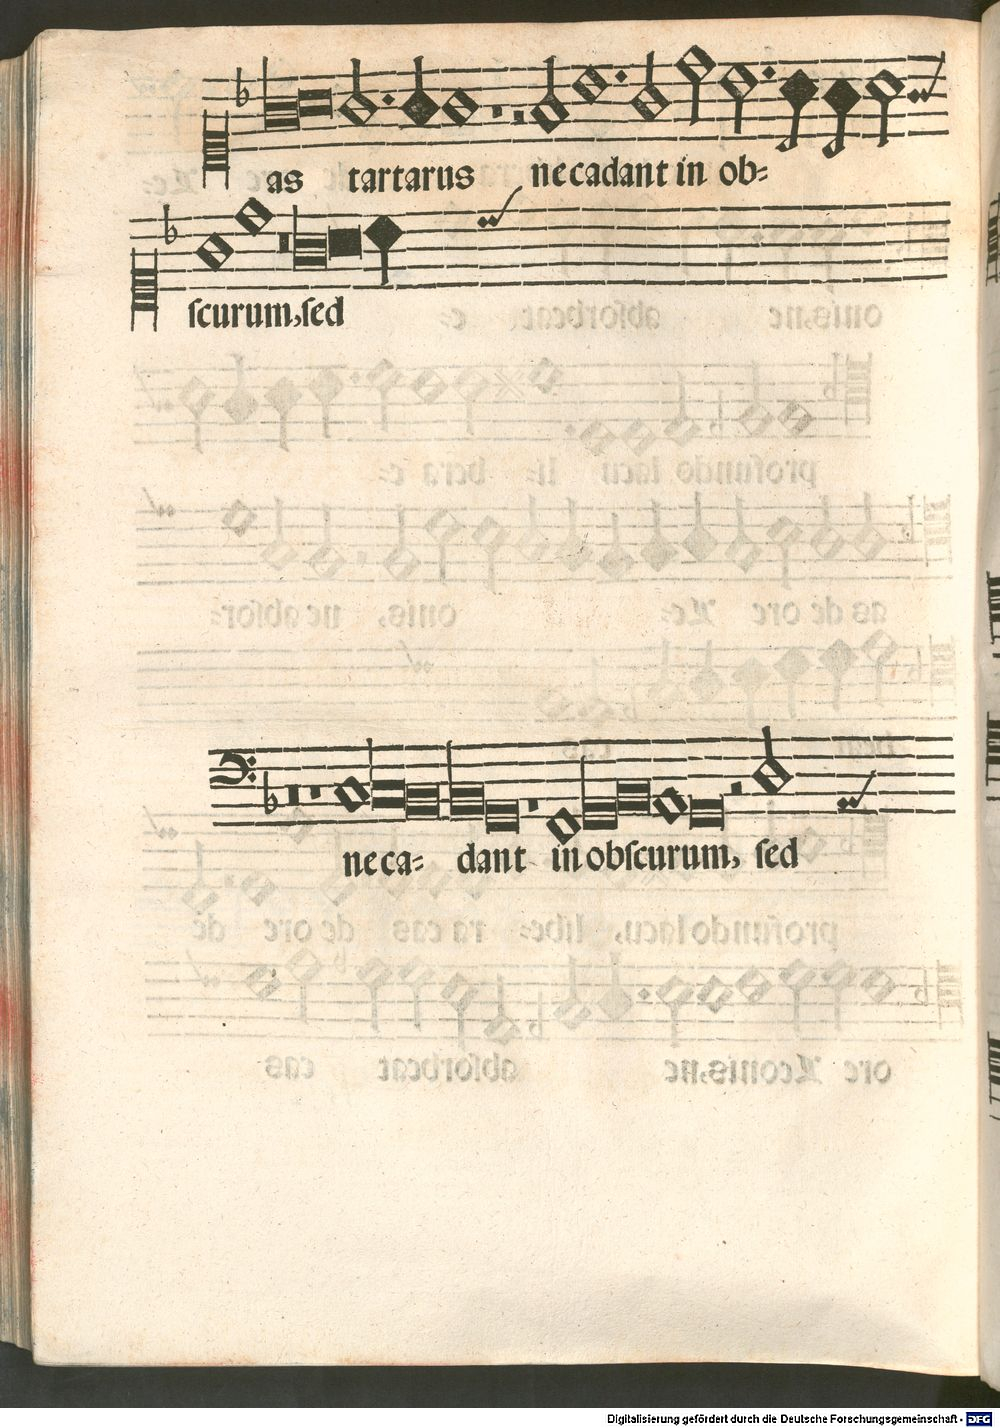 as tartarus ne cadant in ob⸗
scurum, sed
ne ca⸗ dant in obscurum, sed
Digitalisierung gefördert durch die Deutsche Forschungsgemeinschaft - DFG